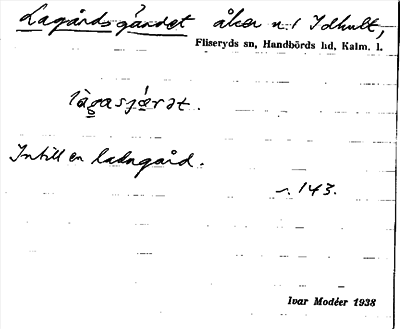 Lagårdsgärdet åker n. 1 Idhult,
Fliseryds sn, Handbörds hd, Kalm. l.
lagasjæret.
Intill en ladugård.
143.
Ivar Modéer 1938